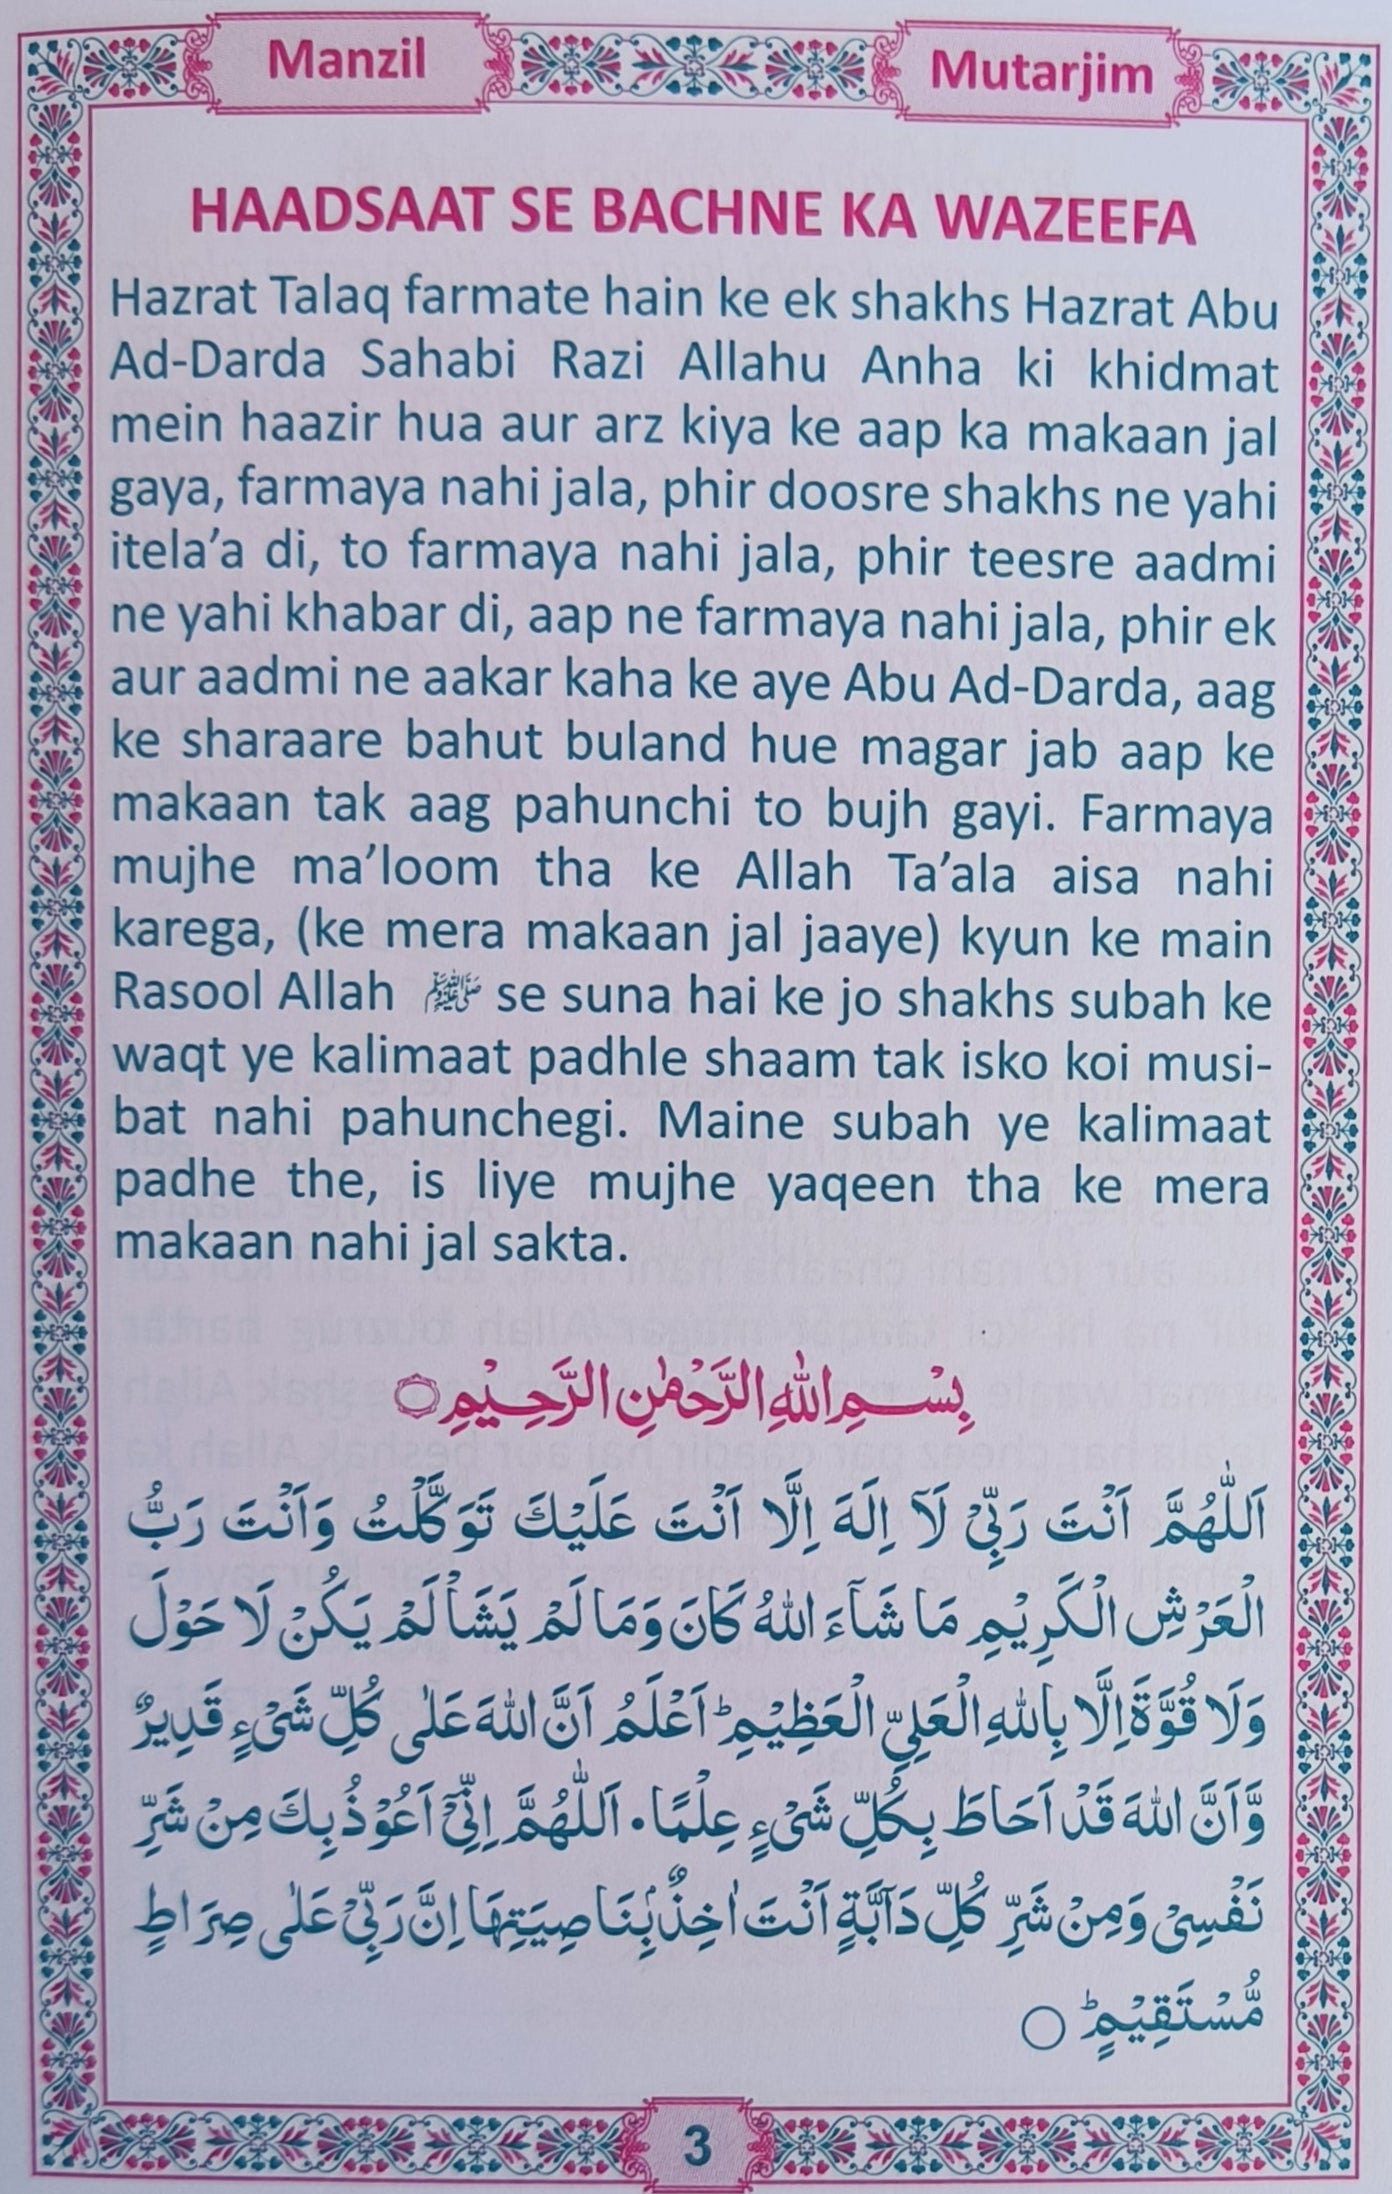 Manzil
Mutarjim
HAADSAAT SE BACHNE KA WAZEEFA
Hazrat Talaq farmate hain ke ek shakhs Hazrat Abu
Ad-Darda Sahabi Razi Allahu Anha ki khidmat
mein haazir hua aur arz kiya ke aap ka makaan jal
gaya, farmaya nahi jala, phir doosre shakhs ne yahi
itela’a di, to farmaya nahi jala, phir teesre aadmi
ne yahi khabar di, aap ne farmaya nahi jala, phir ek
aur aadmi ne aakar kaha ke aye Abu Ad-Darda, aag
ke sharaare bahut buland hue magar jab aap ke
makaan tak aag pahunchi to bujh gayi. Farmaya
mujhe ma’loom tha ke Allah Ta’ala aisa nahi
karega, (ke mera makaan jal jaaye) kyun ke main
Rasool Allah ﷺ se suna hai ke jo shakhs subah ke
waqt ye kalimaat padhle shaam tak isko koi musi-
bat nahi pahunchegi. Maine subah ye kalimaat
padhe the, is liye mujhe yaqeen tha ke mera
makaan nahi jal sakta.
بِسْمِ اللهِ الرَّحْمٰنِ الرَّحِيْمِ○
اَللّٰهُمَّ اَنْتَ رَبِّيْ لَآ اِلَهَ اِلَّا اَنْتَ عَلَيْكَ تَوَكَّلْتُ وَاَنْتَ رَبُّ
الْعَرْشِ الْكَرِيْمِ مَا شَآءَ اللهُ كَانَ وَمَا لَمْ يَشَاْ لَمْ يَكُنْ لَا حَوْلَ
وَلَا قُوَّةَ اِلَّا بِاللهِ الْعَلِيِّ الْعَظِيْمِ ؕ اَعْلَمُ اَنَّ اللهَ عَلٰى كُلِّ شَيْءٍ قَدِيرٌ
وَّاَنَّ اللهَ قَدْ اَحَاطَ بِكُلِّ شَيْءٍ عِلْمًا. اَللّٰهُمَّ اِنِّيْٓ اَعُوْذُ بِكَ مِنْ شَرِّ
نَفْسِيْ وَمِنْ شَرِّ كُلِّ دَآبَّةٍ اَنْتَ اٰخِذٌۢ بِنَاصِيَتِهَا اِنَّ رَبِّيْ عَلٰى صِرَاطٍ
مُّسْتَقِيْمٍ ؕ ○
3